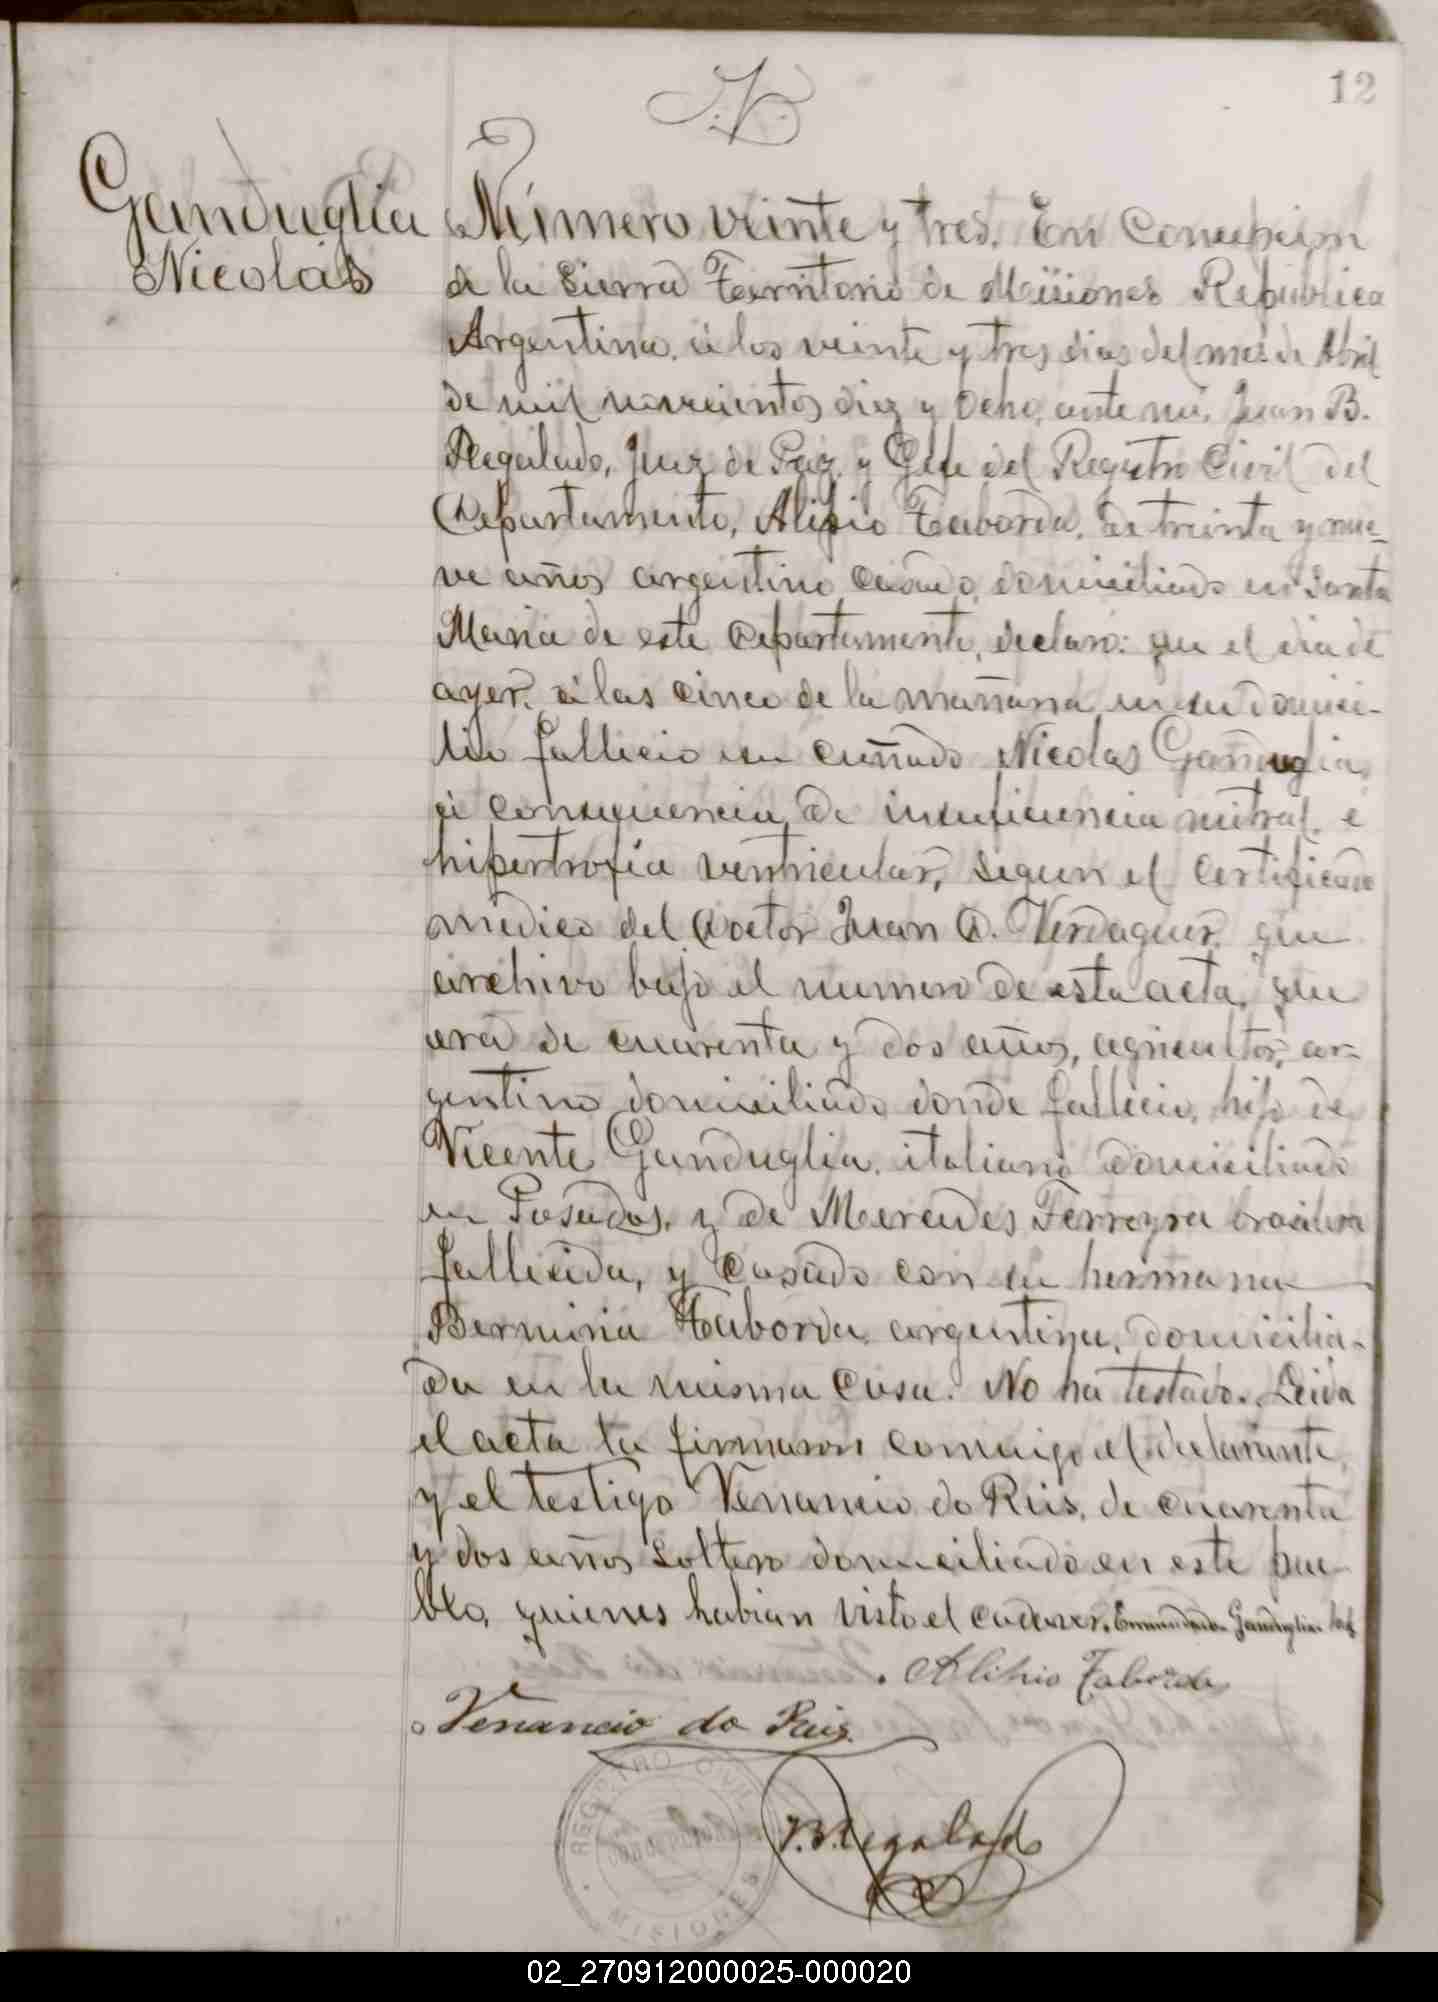 12
Ganduglia
Nicolás
Número veinte y tres. En Concepcion
de la Sierra Territorio de Misiones Republica
Argentina, á los veinte y tres dias del mes de Abril
de mil novecientos diez y ocho, ante mi, Juan B.
Regalado, Juez de Paz y Gefe del Registro Civil del
Departamento, Alipio Taborda, de treinta y nue-
ve años argentino casado, domiciliado en Santa
Maria de este Departamento, declaró: que el dia de
ayer, á las cinco de la mañana en su domici-
lio fallecio su cuñado Nicolas Ganduglia,
á consecuencia de insuficiencia mitral é
hipertrofia ventricular, segun el certificado
medico del Doctor Juan D. Verdaguer, que
archivo bajo el numero de esta acta, que
era de cuarenta y dos años, agricultor, ar-
gentino domiciliado donde fallecio, hijo de
Vicente Ganduglia, italiano domiciliado
en Posadas, y de Mercedes Ferreyra brasilera
fallecida, y casado con su hermana
Taborda argentina, domicilia-
da en la misma casa. No ha testado. Leida
el acta la firmaron conmigo el declarante,
y el testigo Venancio do Reis, de cuarenta
y dos años soltero domiciliado en este pue-
blo, quienes habian visto el cadaver. Enmendado Ganduglia
Alipio Taborda
Venancio do Reis
J. B. Regalado
REGISTRO CIVIL
MISIONES
02_270912000025-000020